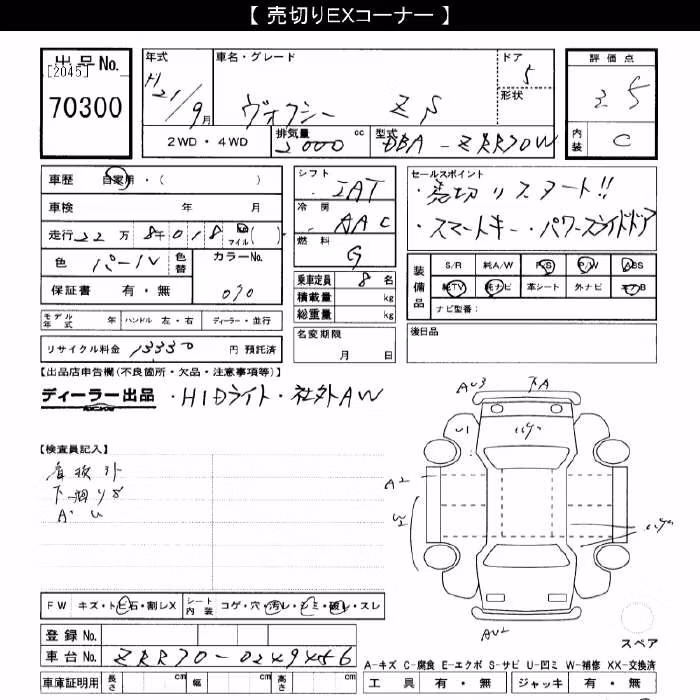 【 売切りEXコーナー 】
出品 No.
[2045]
70300
年式
H21/9月
車名・グレード
ヴォクシー ZS
ドア
5
形状
2WD・4WD
排気量
2000 cc
型式
DBA-ZRR70W
評価点
3.5
内装
C
車歴 自家用・( )
車検 年 月
走行 22万 8千018 km マイル( )
色 パール 色替
カラーNo.
070
保証書 有・無
モデル年式 年 ハンドル 左・右 ディーラー・並行
リサイクル料金 13330 円 預託済
シフト
IAT
冷房
AAC
燃料
G
乗車定員 8 名
積載量 kg
総重量 kg
名変期限
月 日
セールスポイント
・売切りスタート!!
・スマートキー・パワースライドドア
装備品
S/R 純A/W P/S P/W ABS
純TV 純ナビ 革シート 外ナビ エアB
ナビ型番:
後日品
【出品店申告欄(不良箇所・欠品・注意事項等)】
ディーラー出品 ・HIDライト・社外AW
【検査員記入】
下廻りS
A・U
AU3
下A
U1
A2
W2
AU2
FW キズ・トビ石・割レX シート内装 コゲ・穴・汚レ・シミ・破レ・スレ
登録 No.
車台 No. ZRR70-0249456
車庫証明用 長さ cm 幅 cm 高さ cm
スペア
A-キズ C-腐食 E-エクボ S-サビ U-凹ミ W-補修 XX-交換済
工具 有・無 ジャッキ 有・無